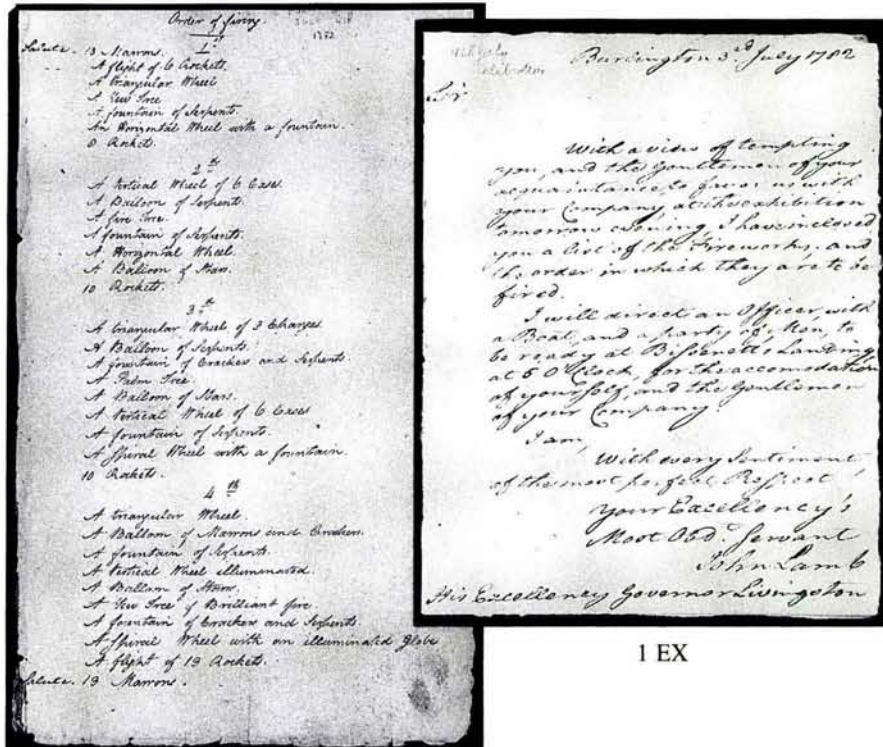 Order of firing
1st
Salute. 13 Marrons.
A flight of 6 Rockets.
A triangular Wheel
A Yew Tree
A fountain of Serpents.
An Horizontal Wheel with a fountain.
8 Rockets.
2th
A Vertical Wheel of 6 Cases.
A Balloon of Serpents.
A fire Tree.
A fountain of Serpents.
A Horizontal Wheel.
A Balloon of Stars.
10 Rockets.
3th
A triangular Wheel of 3 Changes
A Balloon of Serpents.
A fountain of Crackers and Serpents.
A Palm Tree.
A Balloon of Stars.
A Vertical Wheel of 6 Cases
A fountain of Serpents.
A Spiral Wheel with a fountain.
10 Rockets.
4th
A triangular Wheel.
A Balloon of Marrons and Crackers.
A fountain of Serpents.
A Vertical Wheel illuminated.
A Balloon of Stars.
A Yew Tree of Brilliant fire
A fountain of Crackers and Serpents.
A Spiral Wheel with an illuminated Globe
A flight of 13 Rockets.
Salute. 13 Marrons.
Burlington 3d July 1782
Sir
With a view of tempting
you, and the Gentlemen of your
acquaintance, to favor us with
your Company at the exhibition
tomorrow evening, I have inclosed
you a list of the Fireworks, and
the order in which they are to be
fired.
I will direct an Officer, with
a Boat, and a party of Men, to
be ready at Bissenett's Landing,
at 5 O'Clock, for the accomodation
of yourself, and the Gentlemen
of your Company.
I am,
With every Sentiment
of the most perfect Respect
Your Excellency's
Most Obd. Servant
John Lamb
His Excellency Governor Livingston
1 EX